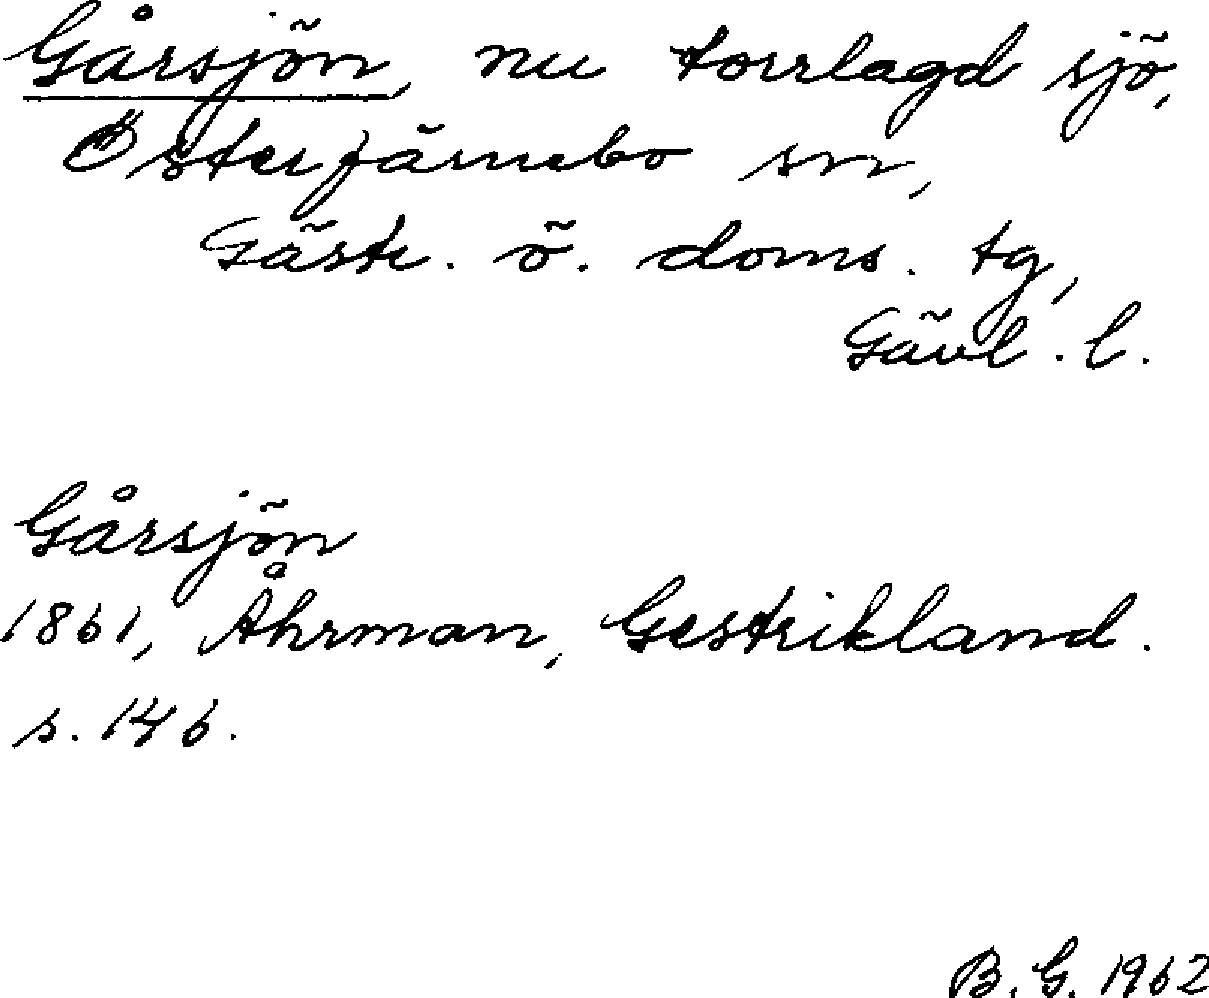 Gårsjön, nu torrlagd sjö,
Österfärnebo sn,
Gästr. ö. doms. tg,
Gävl. l.
Gårsjön
1861, Åhrman, Gestrikland.
s. 146.
B. G. 1962